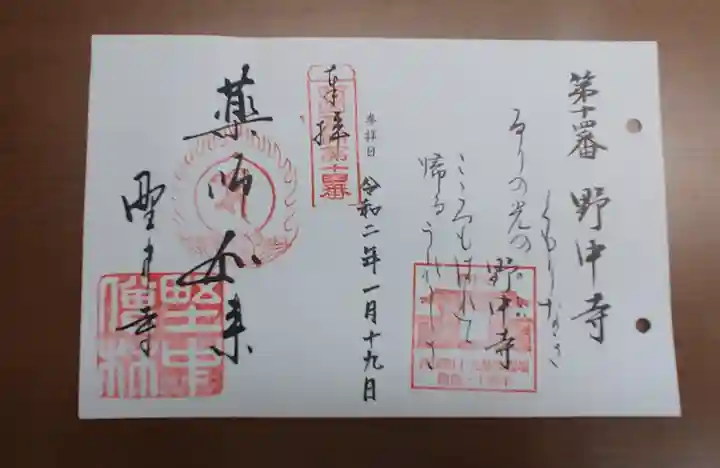 第十四番 野中寺
くもりなき
るりの光の 野中寺
こころもはれて
帰るうれしさ
参拝日 令和二年一月十九日
奉拝
薬師如来
野中寺
野中
僧林